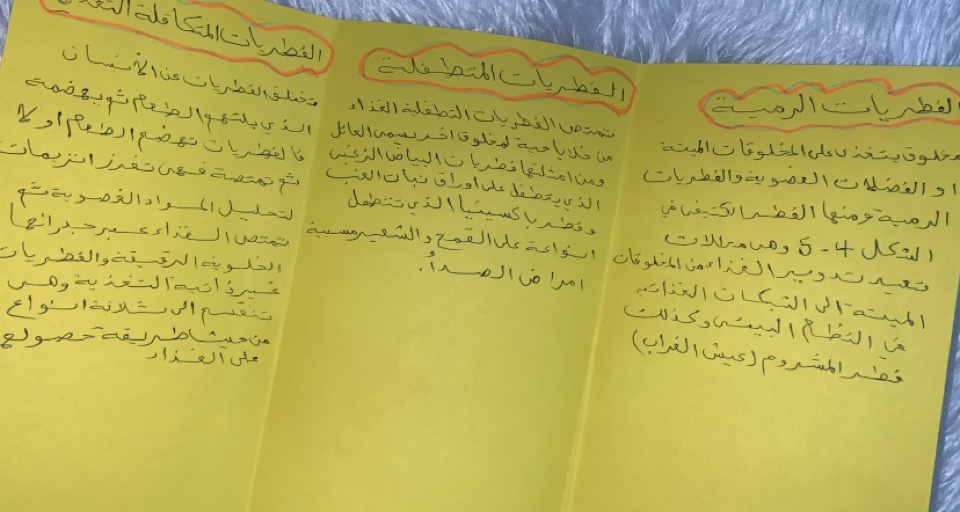 الفطريات الرمية
مخلوق يتغذى على المخلوقات الميتة
او الفضلات العضوية والفطريات
الرمية ومنها الفطر الكتيفي في
الشكل 4-5 وهي محللات
تعيد تدوير الغذاء من المخلوقات
الميتة الى الشبكات الغذائيه
في النظام البيئي وكذلك
فطر المشروم (عيش الغراب)
الفطريات المتطفلية
تمتص الفطريات التطفلية الغذاء
من خلايا حية لمخلوق اخر يسمى العائل
ومن امثلتها فطريات البياض الزغبي
الذي يتطفل على اوراق نبات العنب
وفطر باكسينيا الذي تتطفل
انواعة على القمح والشعير مسببة
امراض الصدأ.
الفطريات المتكافلة
وتختلف الفطريات عن الانسان
الذي يلتهم الطعام ثم يهضمة
فالفطريات تهضم الطعام اولا
ثم تمتصة فهي تفرز انزيمات
لتحليل المواد العضوية ثم
تمتص الغذاء عبر جدرانها
الخلوية الرقيقة والفطريات
غير ذاتية التغذية وهي
تنقسم الى ثلاثة انواع
من حيث طريقة حصولها
على الغذاء